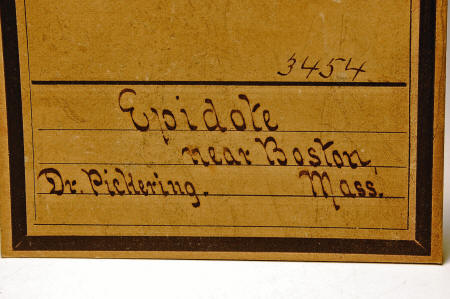 3454
Epidote
near Boston,
Dr. Pickering. Mass.